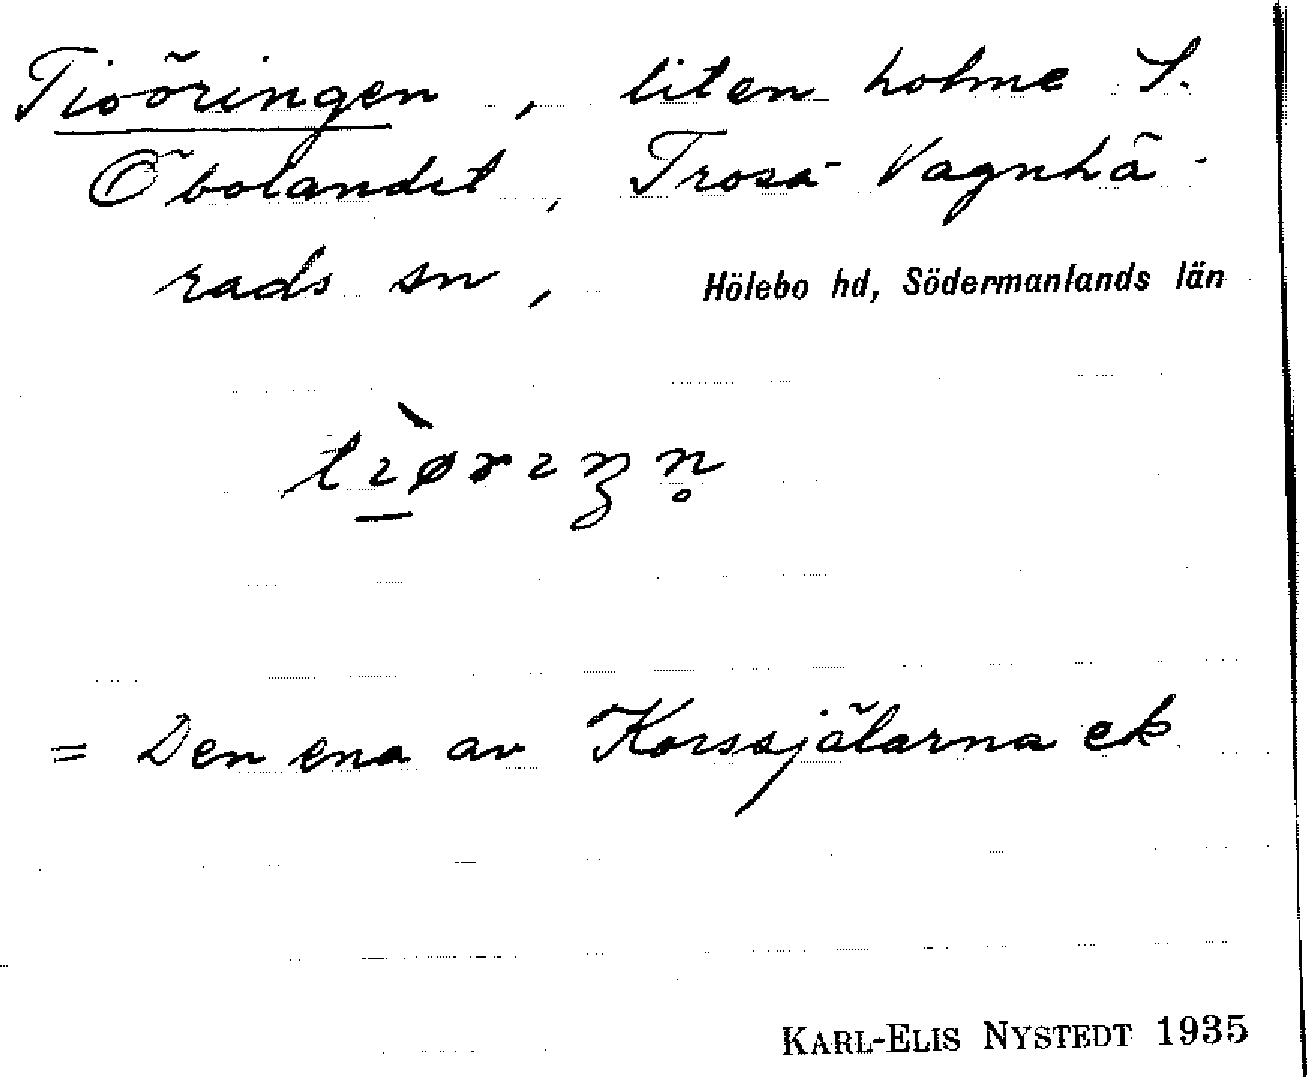 Tioöringen, liten holme S.
Öbolandet, Trosa-Vagnhä-
rads sn, Hölebo hd, Södermanlands län
= Den ena av Korssjälarna ek
KARL-ELIS NYSTEDT 1935